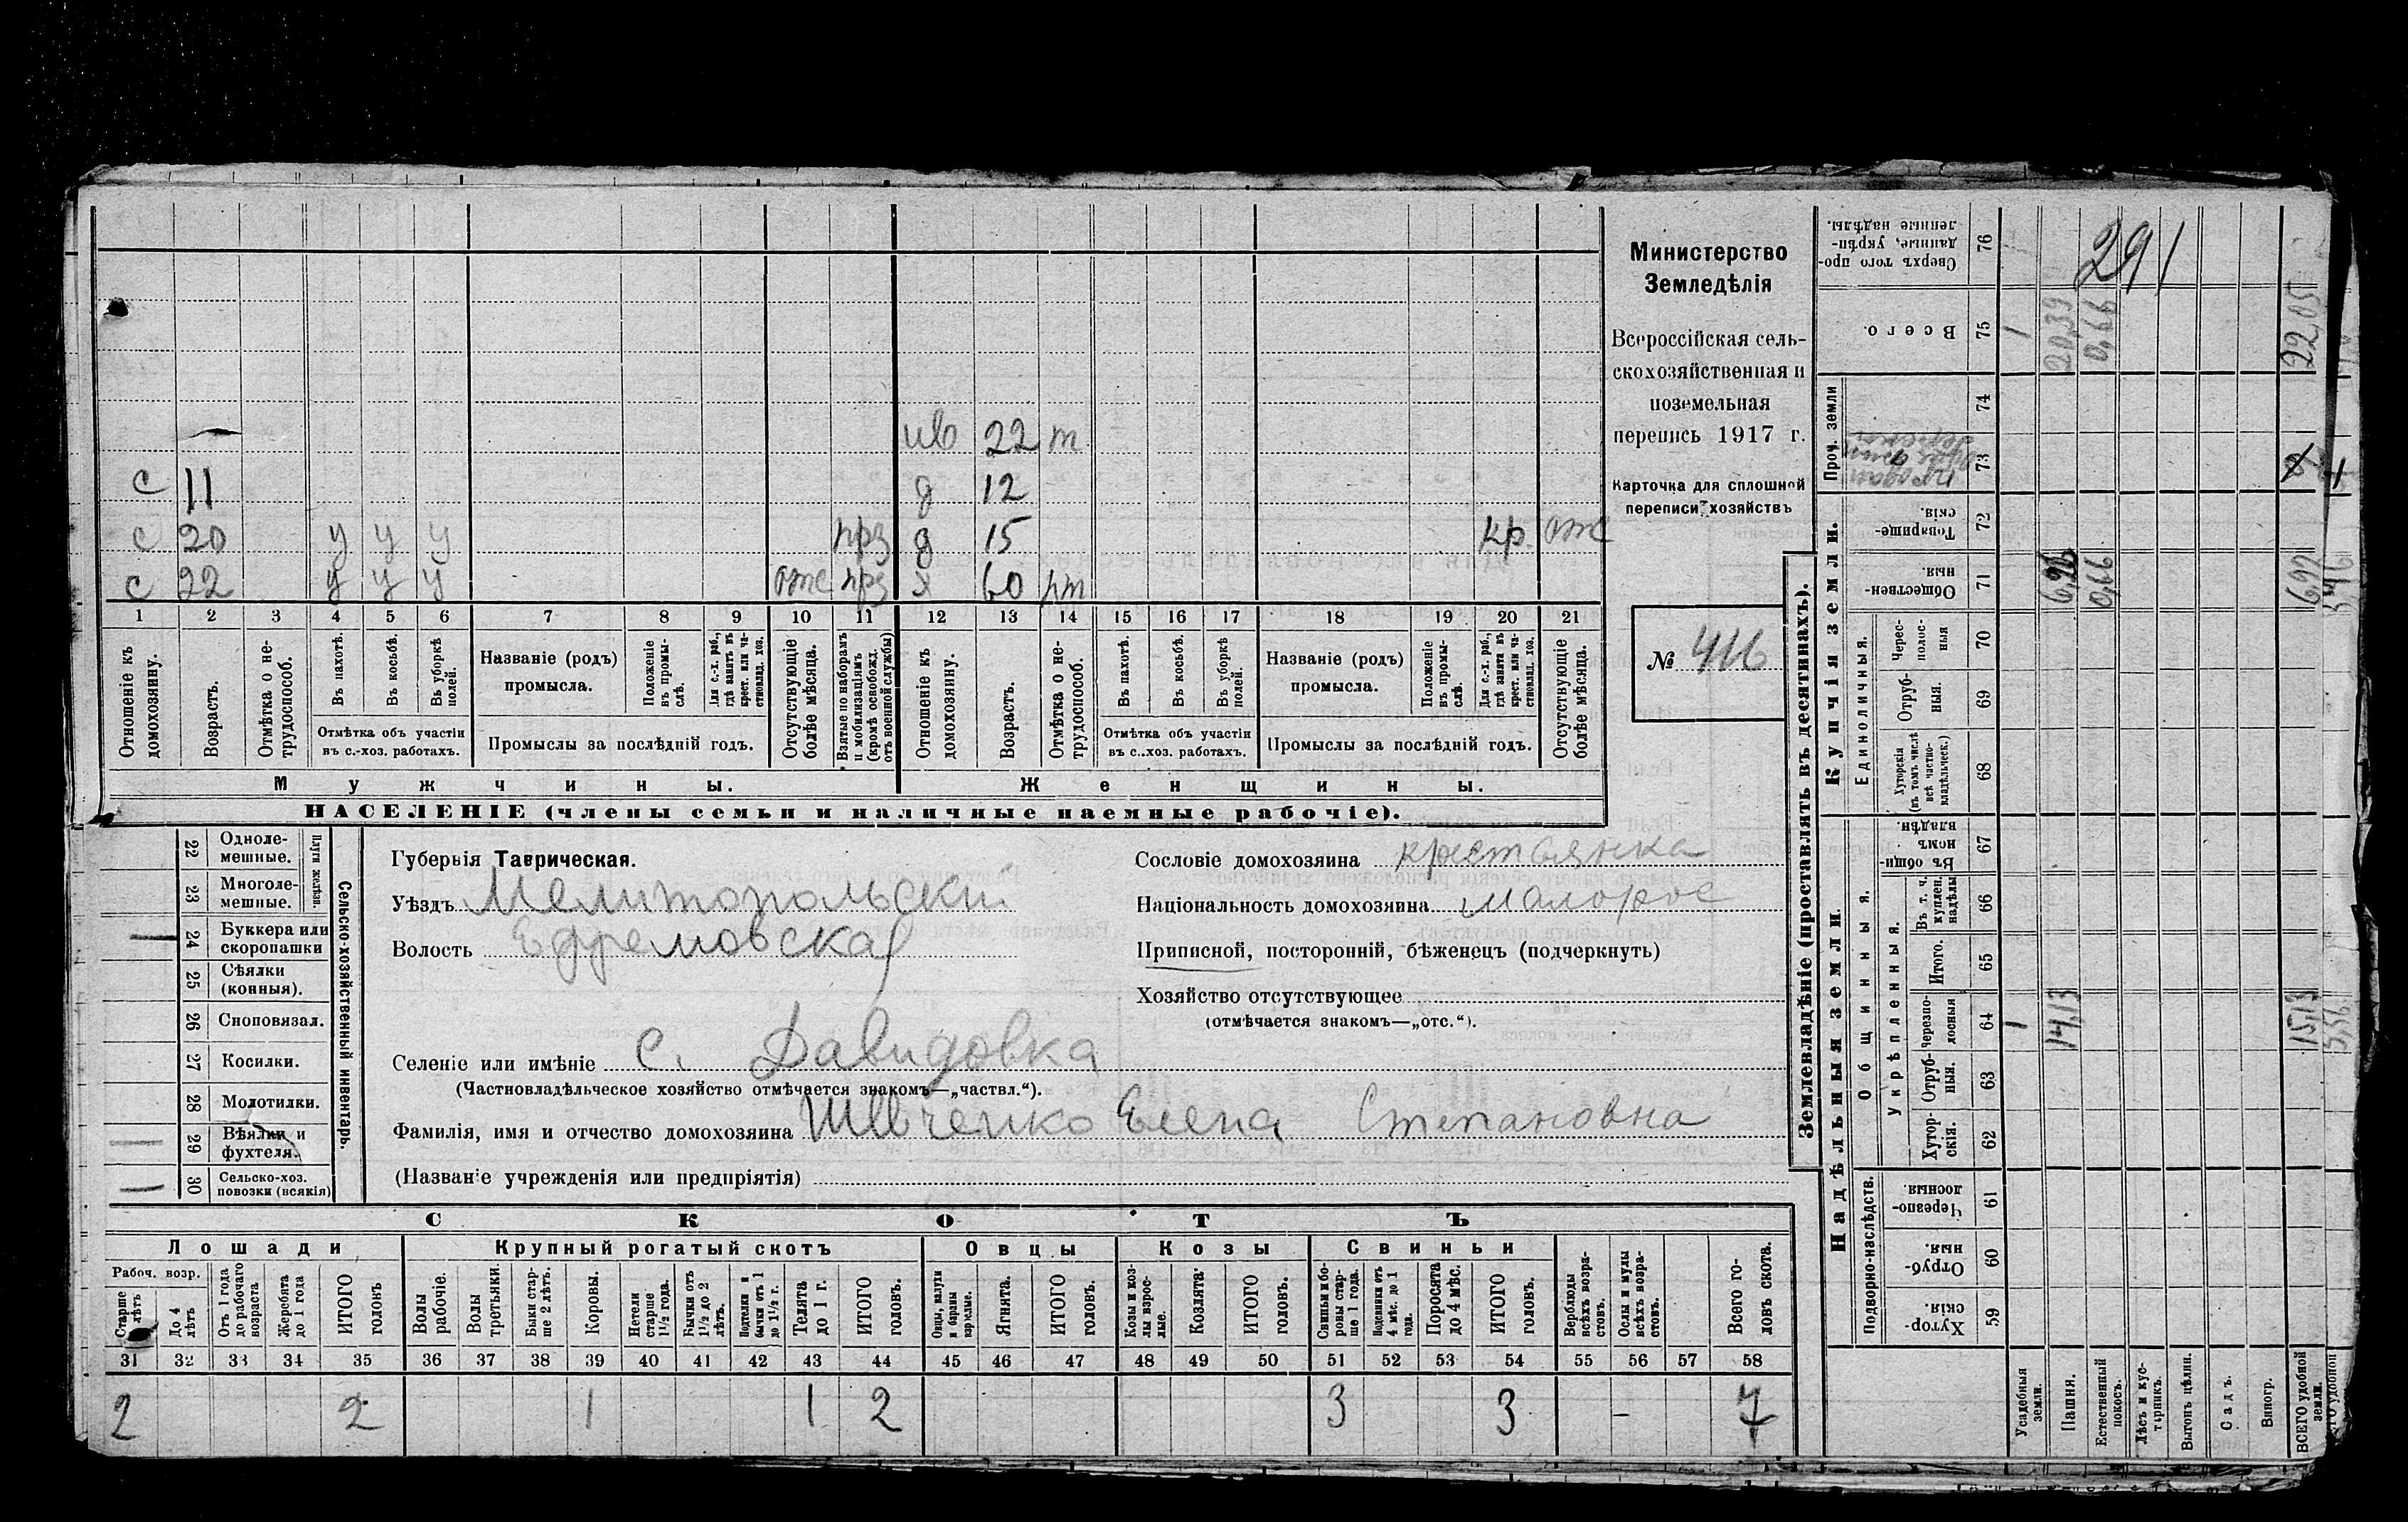 ив 22 т
с 11 д 12
с 20 у у у прз д 15 кр. отс
с 22 у у у отс прз х 60 рт
1 2 3 4 5 6 7 8 9 10 11 12 13 14 15 16 17 18 19 20 21
Отношеніе къ домохозяину.
Возрастъ.
Отмѣтка о не-
трудоспособ.
Въ пахотѣ.
Въ косьбѣ.
Въ уборкѣ
полей.
Отмѣтка объ участіи
въ с.-хоз. работахъ.
Названіе (родъ)
промысла.
Положеніе
въ промы-
слѣ.
Для с.-х. раб.,
гдѣ занятъ въ
крест. или ча-
стновлад. хоз.
Промыслы за послѣдній годъ.
Отсутствующіе
болѣе мѣсяца.
Взятые по наборамъ
и мобилизаціямъ
(кромѣ освобожд.
отъ военной службы)
Отношеніе къ
домохозяину.
Возрастъ.
Отмѣтка о не-
трудоспособ.
Въ пахотѣ.
Въ косьбѣ.
Въ уборкѣ
полей.
Отмѣтка объ участіи
въ с.-хоз. работахъ.
Названіе (родъ)
промысла.
Положеніе
въ промы-
слѣ.
Для с.-х. раб.,
гдѣ занята въ
крест. или ча-
стновлад. хоз.
Промыслы за послѣдній годъ.
Отсутствующіе
болѣе мѣсяца.
Мужчины.
Женщины.
НАСЕЛЕНІЕ (члены семьи и наличные наемные рабочіе).
Министерство
Земледѣлія
Всероссійская сель-
скохозяйственная и
поземельная
перепись 1917 г.
Карточка для сплошной
переписи хозяйствъ
№ 416
22 Одноле-
мешные.
23 Многоле-
мешные.
Плуги желѣзн.
24 Буккера или
скоропашки
25 Сѣялки
(конныя).
26 Сноповязал.
27 Косилки.
28 Молотилки.
29 Вѣялки и
фухтеля.
30 Сельско-хоз.
повозки (всякія)
Сельско-хозяйственный инвентарь.
Губернія Таврическая.
Уѣздъ Мелитопольский
Волость Ефремовская
Селеніе или имѣніе с. Давидовка
(Частновладѣльческое хозяйство отмѣчается знакомъ—„частвл.“).
Фамилія, имя и отчество домохозяина Шевченко Елена Степановна
(Названіе учрежденія или предпріятія)
Сословіе домохозяина крестьянка
Національность домохозяина малорос
Приписной, посторонній, бѣженецъ (подчеркнуть)
Хозяйство отсутствующее
(отмѣчается знакомъ—„отс.“).
СКОТЪ
Лошади
Рабоч. возр.
Старше
лѣтъ
До 4
лѣтъ
Отъ 1 года
до рабочаго
возраста
Жеребята
до 1 года
ИТОГО
головъ
Крупный рогатый скотъ
Волы
рабочіе.
Волы
третьяки.
Быки стар-
ше 2 лѣтъ.
Коровы.
Нетели
старше
1½ года.
Бычки отъ
1½ до 2
лѣтъ.
Подтелки и
бычки отъ 1
до 1½ г.
Телята
до 1 г.
ИТОГО
головъ.
Овцы
Овцы, валухи
и бараны
взрослые.
Ягнята.
ИТОГО
головъ.
Козы
Козы и коз-
лы взрос-
лые.
Козлята.
ИТОГО
головъ.
Свиньи
Свиньи и бо-
ровы стар-
ше 1 года.
Подсвинки отъ
4 мѣс. до 1
года.
Поросята
до 4 мѣс.
ИТОГО
головъ.
Верблюды
всѣхъ возра-
стовъ.
Ослы и мулы
всѣхъ возра-
стовъ.
Всего го-
ловъ скота.
31 32 33 34 35 36 37 38 39 40 41 42 43 44 45 46 47 48 49 50 51 52 53 54 55 56 57 58
2 2 1 1 2 3 3 - 7
Землевладѣніе (проставлять въ десятинахъ).
Купчія земли.
Надѣльныя земли.
Проч. земли
Единоличныя.
Общинныя.
Укрѣпленныя.
Подворно-наслѣдств.
Сверхъ того про-
данные, укрѣп-
ленные надѣлы. 76
291
Всего. 75 1 20,39 0,66 22,05
74
73
Товарище-
скія. 72
Обществен-
ныя. 71 6,26 0,66 6,92
Черес-
полос-
ныя 70
Отруб-
ныя. 69
Хуторскія
(въ томъ числѣ
всѣ частно-
владѣльческ.) 68
Въ общи-
номъ
владѣн. 67
Въ т. ч.
куплен.
надѣлы 66
Итого. 65
Черезпо-
лосныя 64 1 14,13 15,13
Отруб-
ныя. 63
Хутор-
скія. 62
Черезпо-
лосныя. 61
Отруб-
ныя. 60
Хутор-
скія. 59
Усадебныя
земли.
Пашня.
Естественный
покосъ.
Лѣсъ и кус-
тарникъ.
Выгонъ цѣлин.
Садъ.
Виногр.
ВСЕГО удобной
земли.